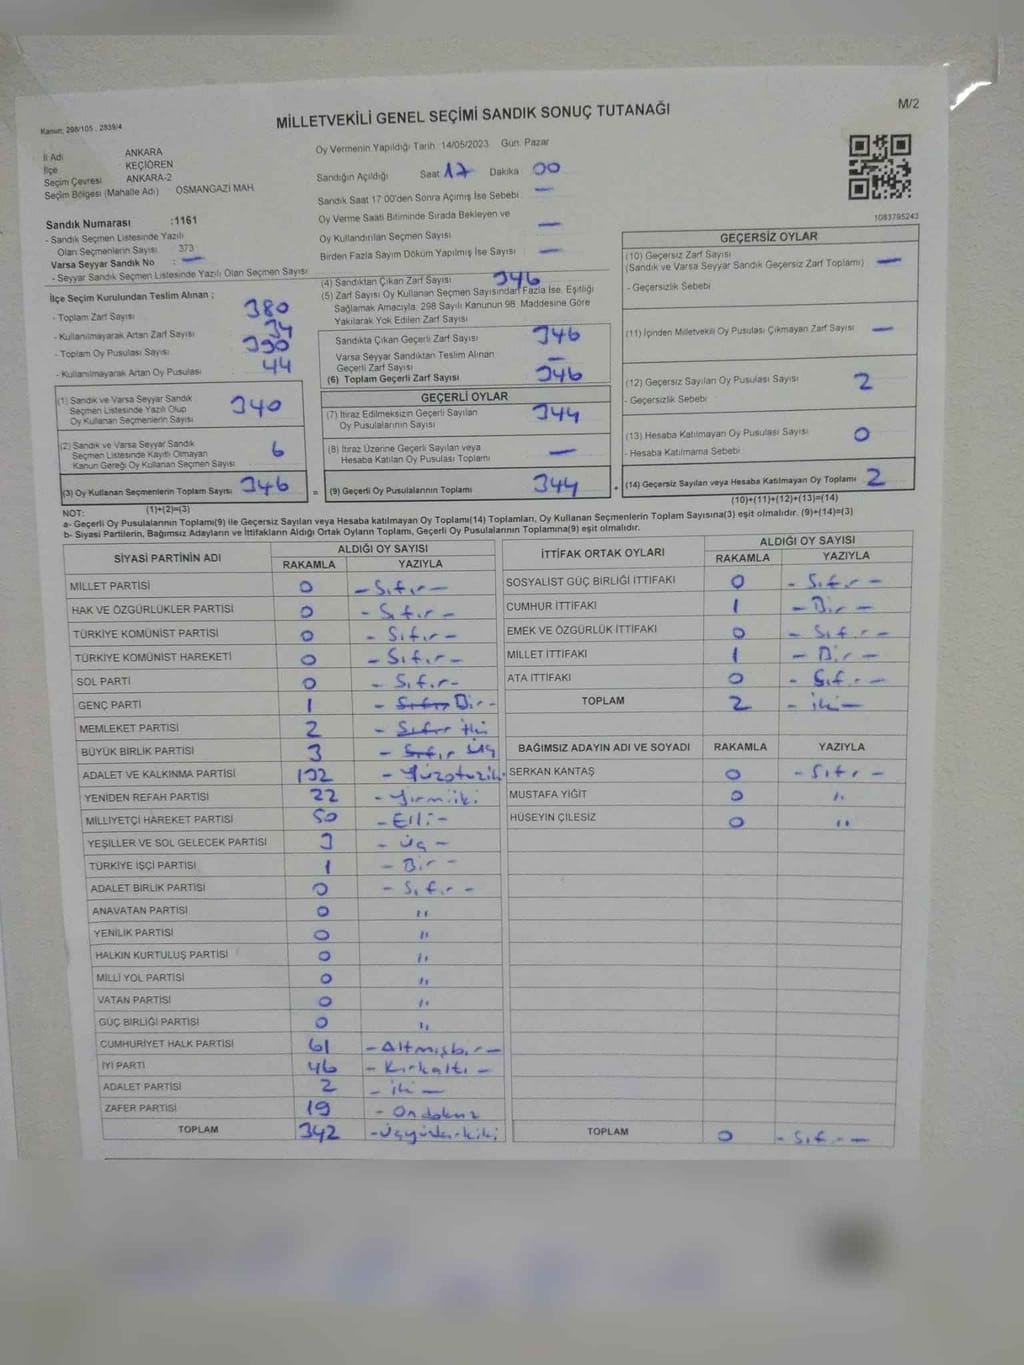 Kanun: 298/105 , 2839/4
MİLLETVEKİLİ GENEL SEÇİMİ SANDIK SONUÇ TUTANAĞI
M/2
İl Adı ANKARA
İlçe KEÇİÖREN
Seçim Çevresi ANKARA-2
Seçim Bölgesi (Mahalle Adı) OSMANGAZİ MAH.
Sandık Numarası :1161
- Sandık Seçmen Listesinde Yazılı
Olan Seçmenlerin Sayısı 373
Varsa Seyyar Sandık No : —
- Seyyar Sandık Seçmen Listesinde Yazılı Olan Seçmen Sayısı
Oy Vermenin Yapıldığı Tarih 14/05/2023 Gün: Pazar
Sandığın Açıldığı Saat 17 Dakika 00
Sandık Saat 17:00'den Sonra Açımış İse Sebebi —
Oy Verme Saati Bitiminde Sırada Bekleyen ve
Oy Kullandırılan Seçmen Sayısı —
Birden Fazla Sayım Döküm Yapılmış İse Sayısı —
1083795243
İlçe Seçim Kurulundan Teslim Alınan ;
- Toplam Zarf Sayısı 380
- Kullanılmayarak Artan Zarf Sayısı 34
- Toplam Oy Pusulası Sayısı 390
- Kullanılmayarak Artan Oy Pusulası 44
(1) Sandık ve Varsa Seyyar Sandık
Seçmen Listesinde Yazılı Olup
Oy Kullanan Seçmenlerin Sayısı 340
(2) Sandık ve Varsa Seyyar Sandık
Seçmen Listesinde Kayıtlı Olmayan
Kanun Gereği Oy Kullanan Seçmen Sayısı 6
(3) Oy Kullanan Seçmenlerin Toplam Sayısı 346
(1)+(2)=(3)
(4) Sandıktan Çıkan Zarf Sayısı 346
(5) Zarf Sayısı Oy Kullanan Seçmen Sayısından Fazla İse, Eşitliği
Sağlamak Amacıyla, 298 Sayılı Kanunun 98. Maddesine Göre
Yakılarak Yok Edilen Zarf Sayısı
Sandıkta Çıkan Geçerli Zarf Sayısı 346
Varsa Seyyar Sandıktan Teslim Alınan
Geçerli Zarf Sayısı —
(6) Toplam Geçerli Zarf Sayısı 346
GEÇERLİ OYLAR
(7) İtiraz Edilmeksizin Geçerli Sayılan
Oy Pusulalarının Sayısı 344
(8) İtiraz Üzerine Geçerli Sayılan veya
Hesaba Katılan Oy Pusulası Toplamı —
= (9) Geçerli Oy Pusulalarının Toplamı 344 +
GEÇERSİZ OYLAR
(10) Geçersiz Zarf Sayısı
(Sandık ve Varsa Seyyar Sandık Geçersiz Zarf Toplamı) —
- Geçersizlik Sebebi
(11) İçinden Milletvekili Oy Pusulası Çıkmayan Zarf Sayısı —
(12) Geçersiz Sayılan Oy Pusulası Sayısı 2
- Geçersizlik Sebebi
(13) Hesaba Katılmayan Oy Pusulası Sayısı 0
- Hesaba Katılmama Sebebi
(14) Geçersiz Sayılan veya Hesaba Katılmayan Oy Toplamı 2
(10)+(11)+(12)+(13)=(14)
NOT:
a- Geçerli Oy Pusulalarının Toplamı(9) ile Geçersiz Sayılan veya Hesaba katılmayan Oy Toplamı(14) Toplamları, Oy Kullanan Seçmenlerin Toplam Sayısına(3) eşit olmalıdır. (9)+(14)=(3)
b- Siyasi Partilerin, Bağımsız Adayların ve İttifakların Aldığı Ortak Oyların Toplamı, Geçerli Oy Pusulalarının Toplamına(9) eşit olmalıdır.
SİYASİ PARTİNİN ADI ALDIĞI OY SAYISI
RAKAMLA YAZIYLA
MİLLET PARTİSİ 0 - Sıfır -
HAK VE ÖZGÜRLÜKLER PARTİSİ 0 - Sıfır -
TÜRKİYE KOMÜNİST PARTİSİ 0 - Sıfır -
TÜRKİYE KOMÜNİST HAREKETİ 0 - Sıfır -
SOL PARTİ 0 - Sıfır -
GENÇ PARTİ 1 - Sıfır Bir -
MEMLEKET PARTİSİ 2 - Sıfır İki
BÜYÜK BİRLİK PARTİSİ 3 - Sıfır Üç
ADALET VE KALKINMA PARTİSİ 132 - Yüzotuziki
YENİDEN REFAH PARTİSİ 22 - Yirmiiki
MİLLİYETÇİ HAREKET PARTİSİ 50 - Elli -
YEŞİLLER VE SOL GELECEK PARTİSİ 3 - Üç -
TÜRKİYE İŞÇİ PARTİSİ 1 - Bir -
ADALET BİRLİK PARTİSİ 0 - Sıfır -
ANAVATAN PARTİSİ 0 "
YENİLİK PARTİSİ 0 "
HALKIN KURTULUŞ PARTİSİ 0 "
MİLLİ YOL PARTİSİ 0 "
VATAN PARTİSİ 0 "
GÜÇ BİRLİĞİ PARTİSİ 0 "
CUMHURİYET HALK PARTİSİ 61 - Altmışbir -
İYİ PARTİ 46 - Kırkaltı -
ADALET PARTİSİ 2 - iki -
ZAFER PARTİSİ 19 - Ondokuz
TOPLAM 342 - Üçyüzkırkiki
İTTİFAK ORTAK OYLARI ALDIĞI OY SAYISI
RAKAMLA YAZIYLA
SOSYALİST GÜÇ BİRLİĞİ İTTİFAKI 0 - Sıfır -
CUMHUR İTTİFAKI 1 - Bir -
EMEK VE ÖZGÜRLÜK İTTİFAKI 0 - Sıfır -
MİLLET İTTİFAKI 1 - Bir -
ATA İTTİFAKI 0 - Sıfır -
TOPLAM 2 - iki -
BAĞIMSIZ ADAYIN ADI VE SOYADI RAKAMLA YAZIYLA
SERKAN KANTAŞ 0 - Sıfır -
MUSTAFA YİĞİT 0 "
HÜSEYİN ÇİLESİZ 0 "
TOPLAM 0 - Sıfır -